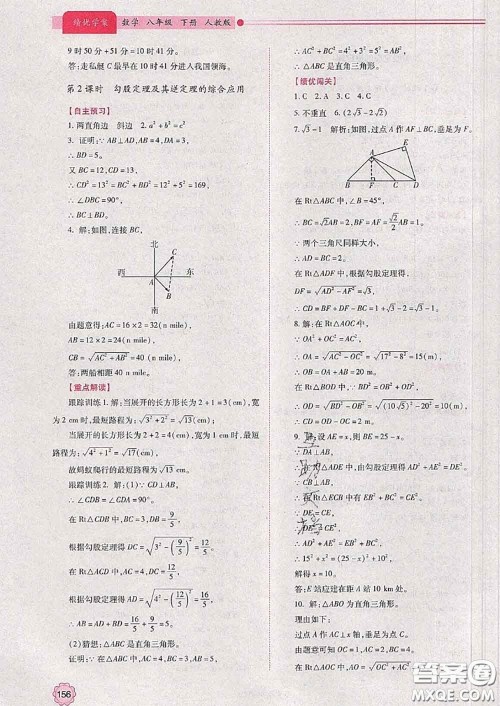 绩优学案 数学 八年级 下册 人教版
9时50分+51分=10时41分.
答:走私艇C最早在10时41分进入我国领海.
第2课时 勾股定理及其逆定理的综合应用
【自主预习】
1. 两直角边 斜边 2. a²+b²=c²
3. 证明:∵BD⊥AB,AB=4,DA=3,
∴BD=5.
又BC=12,CD=13,
∴CD²=13²=BC²+BD²=12²+5²=169,
∴∠DBC=90°.
∴BC⊥BD.
4. 解:如图,连接BC,
北
西 东
A
B
C
南
由题意得:AC=16×2=32(n mile),
AB=12×2=24(n mile),
CB=√(AC²+AB²)=40(n mile).
答:两船相距40 n mile.
【重点解读】
跟踪训练1. 解:当展开的长方形长为2+1=3(cm),宽
为2 cm时,最短路程为:√(3²+2²)=√13(cm);
当展开的长方形长为2+2=4(cm),宽为1 cm时,最短
路程为:√(4²+1²)=√17(cm),
故蚂蚁爬行的最短路程为√13 cm.
跟踪训练2. 解:(1)∵CD⊥AB,
∴∠CDB=∠CDA=90°,
在Rt△CDB中,BC=3,DB=9/5,
根据勾股定理得DC=√(3²-(9/5)²)=12/5;
在Rt△ACD中,AC=4,DC=12/5,
根据勾股定理得AD=√(4²-(12/5)²)=16/5,
∴AB=AD+DB=16/5+9/5=5.
(2)(猜想:)△ABC是直角三角形.
证明:∵在△ABC中,AC=4,BC=3,AB=5,
156
∴AC²+BC²=4²+3²=5²=AB²,
∴△ABC是直角三角形.
【绩优闯关】
1. C 2. A 3. C 4. C
5. 不垂直 6. (2√3-2)
7. √3-1 解析:如图,过点A作AF⊥BC,垂足为F,
A
E
B F C D
在Rt△ABC中,∠B=45°,
∴BC=√2AB=2,BF=AF=√2/2AB=1,
∵两个三角尺同样大小,
∴AD=BC=2.
在Rt△ADF中,根据勾股定理得.
DF=√(AD²-AF²)=√3
∴CD=BF+DF-BC=1+√3-2=√3-1.
8. 解:在Rt△AOC中,
∵OA²+OC²=AC²,
∴OA=√(AC²-OC²)=√(17²-8²)=15(m).
在Rt△BOD中
∵OB²+OD²=BD²,
∴OB=√(BD²-OD²)=√((10√5)²-20²)=10(m).
∴AB=OA+OB=15+10=25(m).
9. 设AE=x,则BE=25-x.
∵DA⊥AB,
∴在Rt△ADE中,由勾股定理得AD²+AE²=DE².
∵CB⊥AB,
∴在Rt△EBC中,EB²+BC²=CE²;
∵DE=CE,
∴DE²=CE²,
∴AD²+AE²=EB²+BC²,
∴15²+x²=(25-x)²+10².
解得x=10.
答:E站应建在距A站10 km处.
10. 解:△ABO为直角三角形.
理由如下:
过点A作AC⊥x轴,垂足为点C,
∴△AOC是直角三角形.